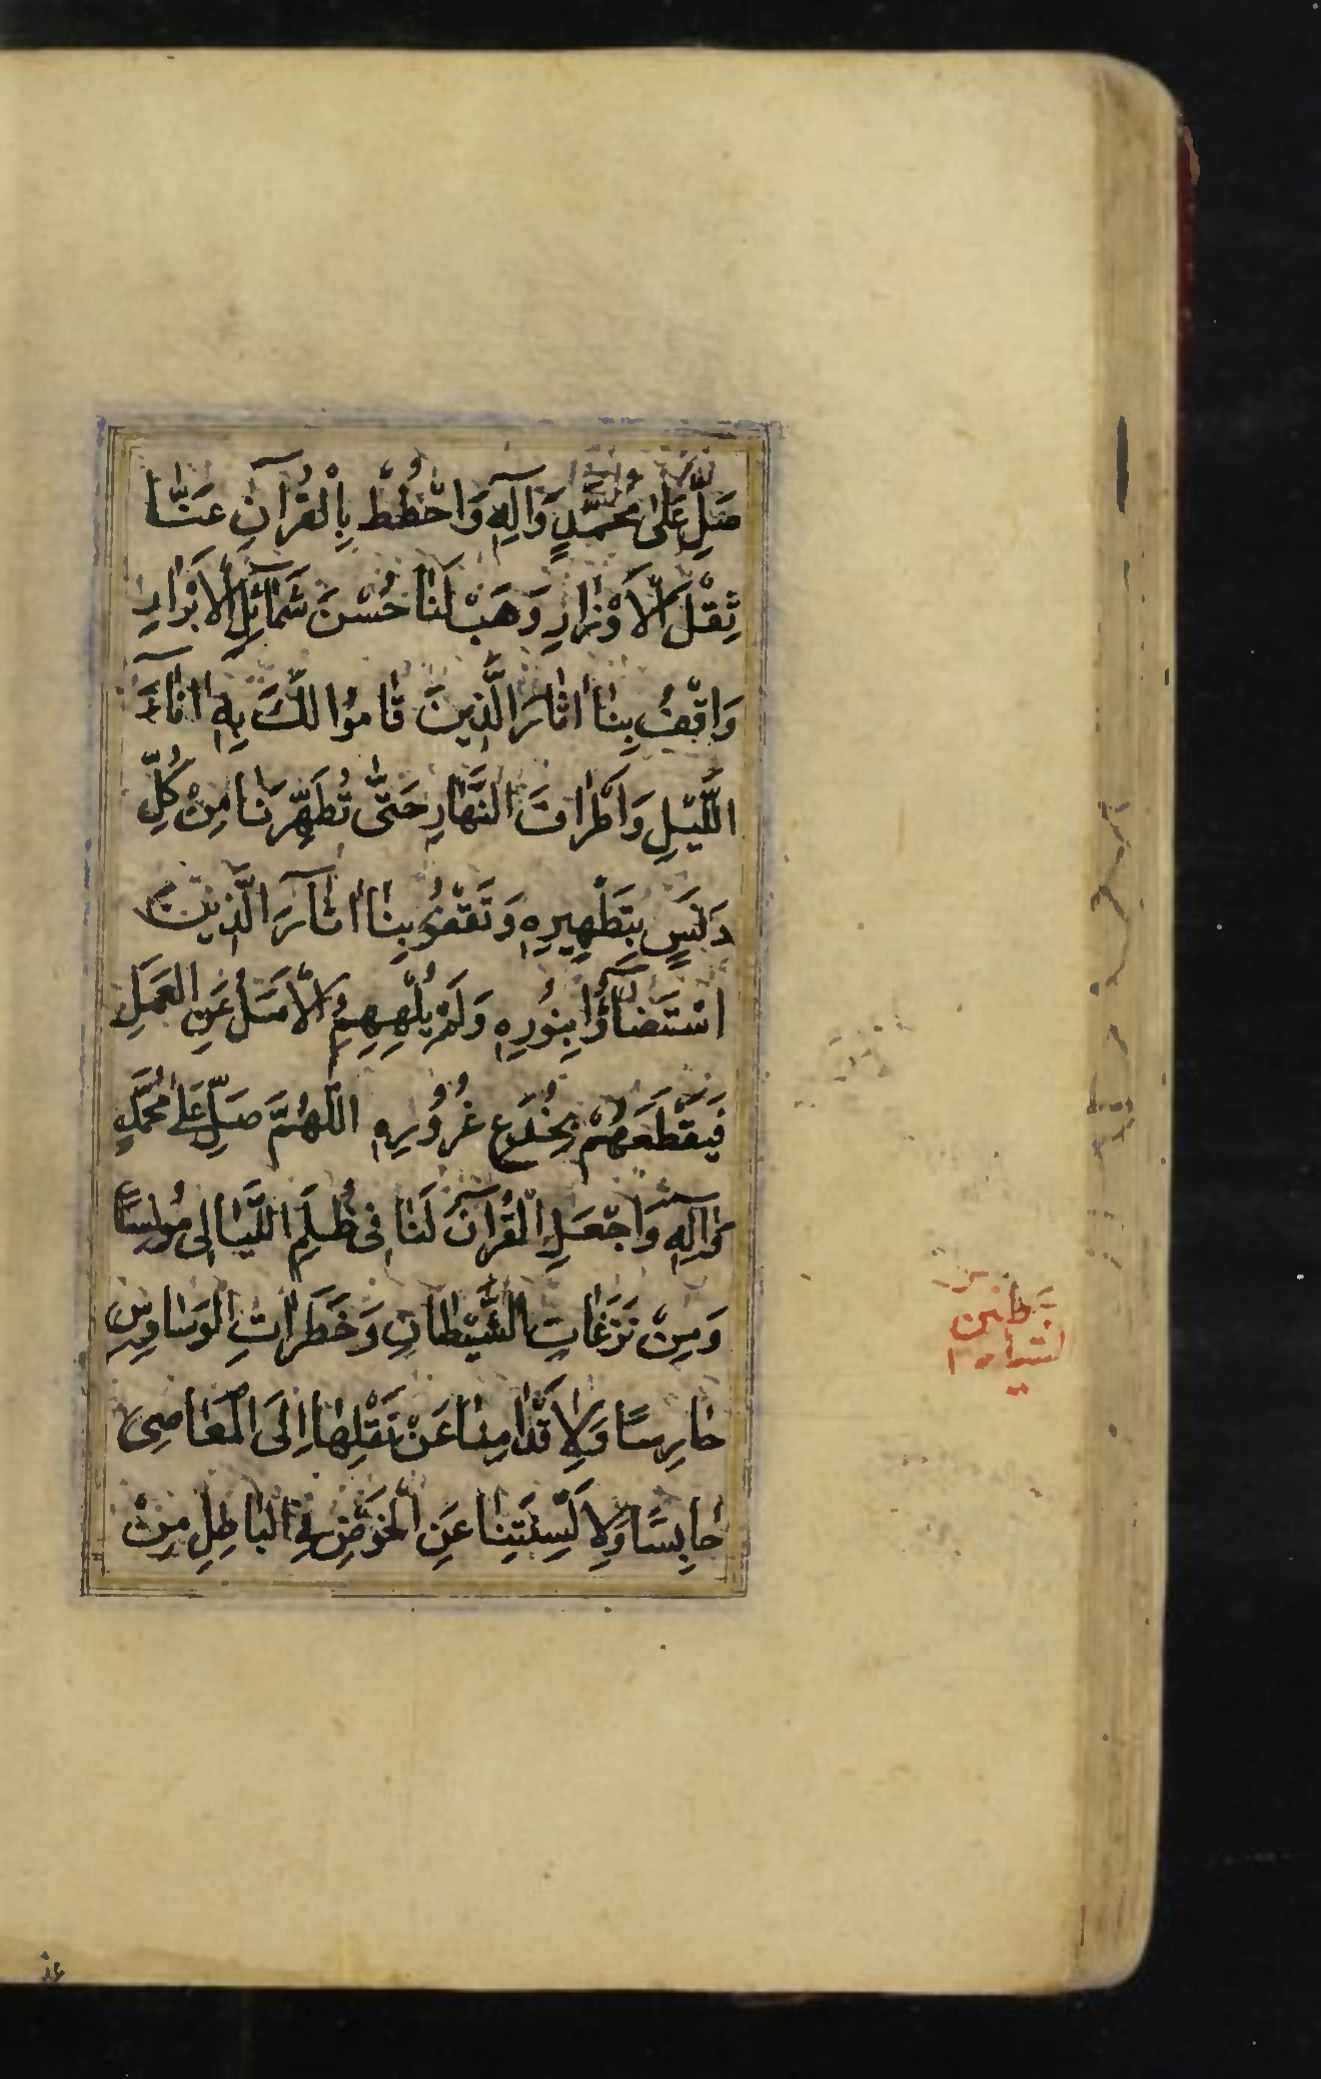 صَلِّ عَلٰى مُحَمَّدٍ وَاٰلِهٖ وَاحْطُطْ بِالْقُرْآنِ عَنَّا
ثِقْلَ الْاَوْزَارِ وَهَبْ لَنَا حُسْنَ شَمَآئِلِ الْاَبْرَارِ
وَاقْفُ بِنَا اٰثَارَ الَّذِينَ قَامُوا لَكَ بِهٖ اٰنَآءَ
اللَّيْلِ وَاَطْرَافَ النَّهَارِ حَتّٰى تُطَهِّرَنَا مِنْ كُلِّ
دَنَسٍ بِتَطْهِيرِهٖ وَتَقْفُوَ بِنَا اٰثَارَ الَّذِينَ
اسْتَضَآؤُا بِنُورِهٖ وَلَمْ يُلْهِهِمُ الْاَمَلُ عَنِ الْعَمَلِ
فَيَقْطَعَهُمْ بِخُدَعِ غُرُورِهٖ اللّٰهُمَّ صَلِّ عَلٰى مُحَمَّدٍ
وَاٰلِهٖ وَاجْعَلِ الْقُرْآنَ لَنَا فِى ظُلَمِ اللَّيَالِى مُونِسًا
وَمِنْ نَزَغَاتِ الشَّيْطَانِ وَخَطَرَاتِ الْوَسَاوِسِ
حَارِسًا وَلِاَقْدَامِنَا عَنْ نَقْلِهَا اِلَى الْمَعَاصِى
حَابِسًا وَلِاَلْسِنَتِنَا عَنِ الْخَوْضِ فِى الْبَاطِلِ مِنْ